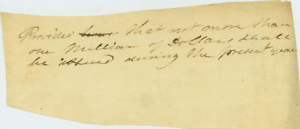 Provided that not more than
one Million of Dollars shall
be issued during the present year